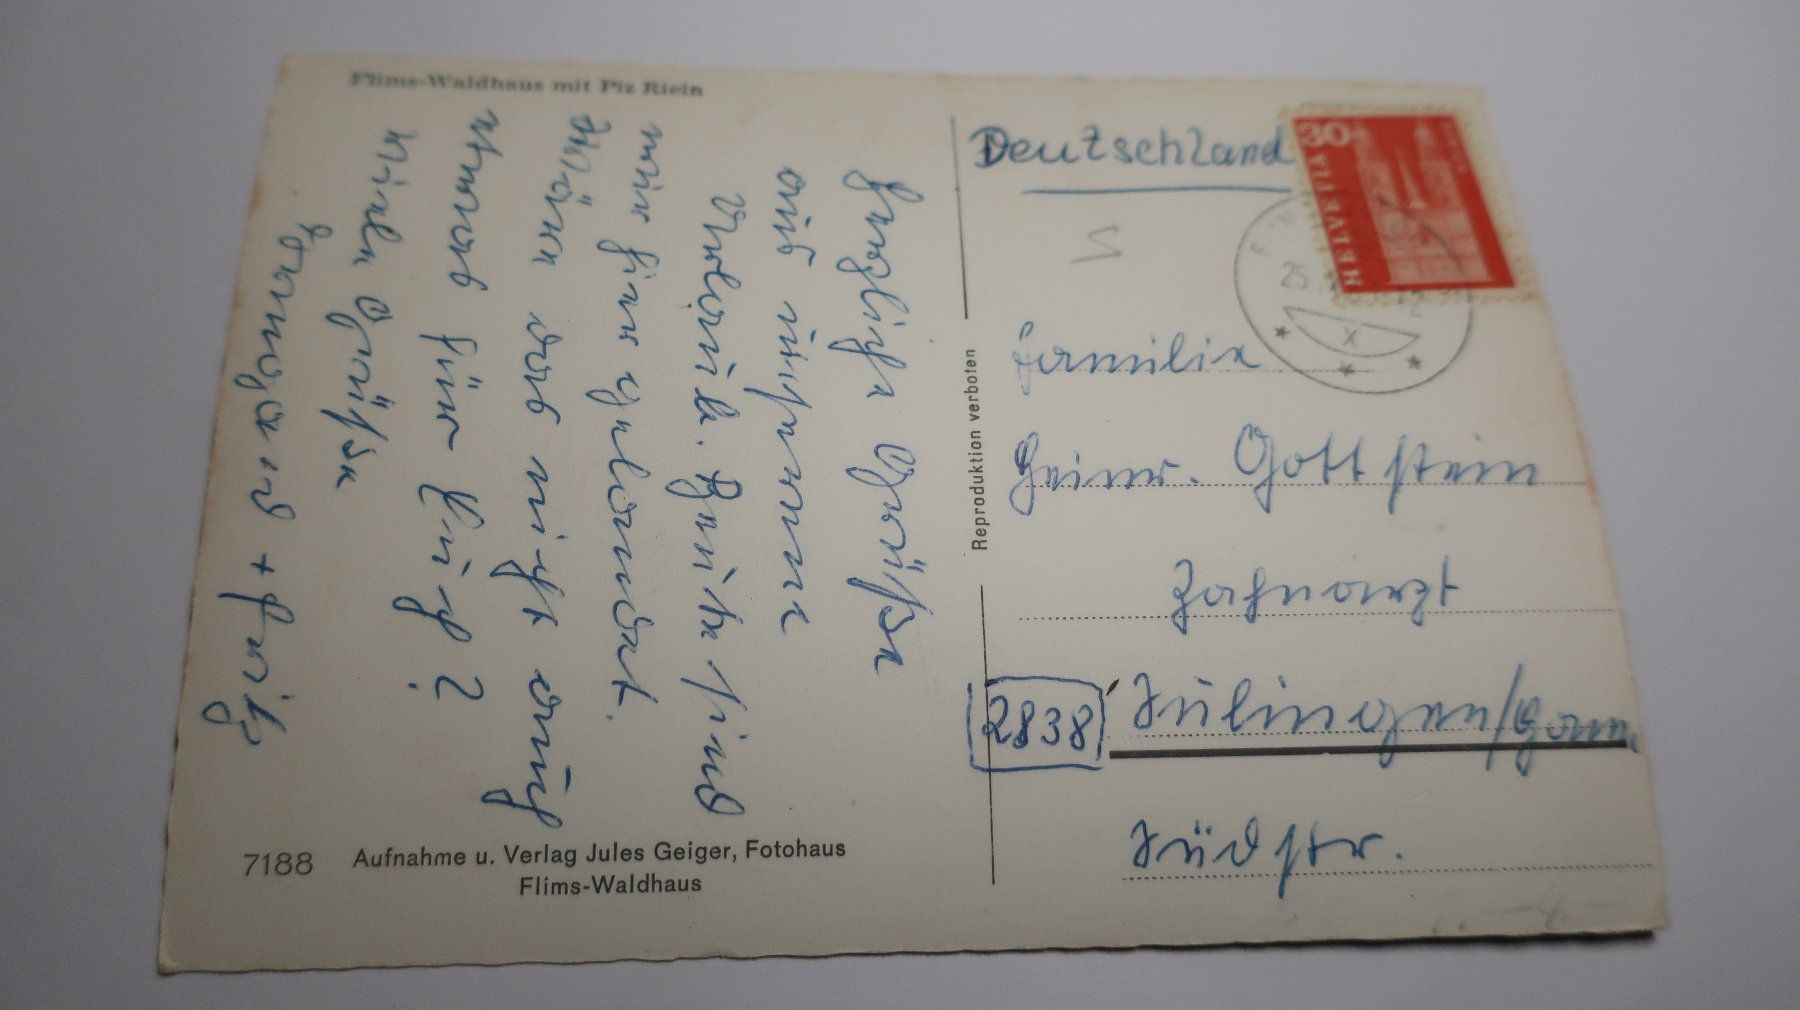 Flims-Waldhaus mit Piz Riein
Herzliche Grüße
aus unserem
Urlaub. Heute sind
wir hier gelandet.
Wäre das nicht auch
etwas für Euch?
Viele Grüße
Irmgard + Fritz
7188 Aufnahme u. Verlag Jules Geiger, Fotohaus
Flims-Waldhaus
Reproduktion verboten
Deutschland
30
HELVETIA
25
Familie
Heinr. Gottstein
Zahnarzt
2838 Sulingen/Hann
Südstr.